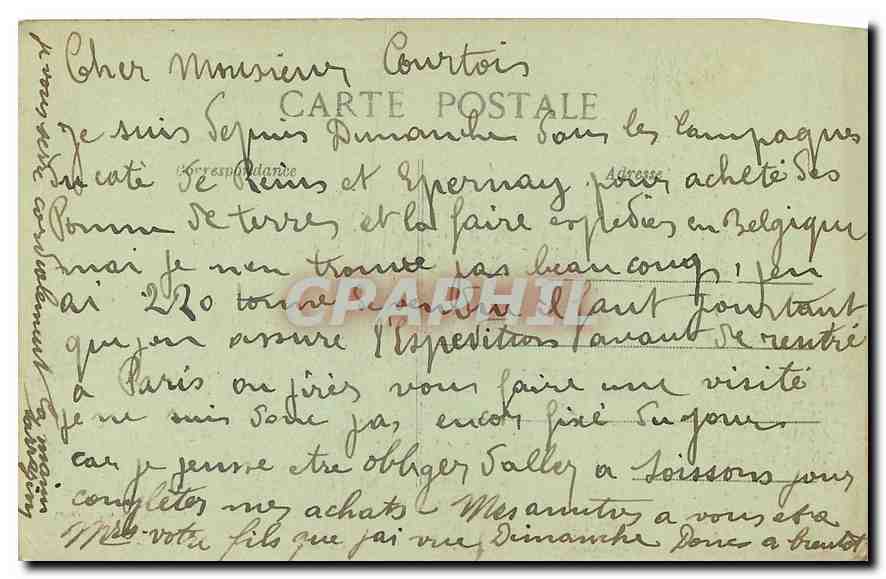 Cher Monsieur Courtois
CARTE POSTALE
je suis depuis Dimanche dans les Campagnes
Correspondance
Adresse
du coté de Reims et Epernay pour acheté des
Pomme de terres et la faire expedies en Belgique
mai je nen trouve pas beaucoup, jen
ai 220 tonne de vendu il faut pourtant
CPAPHIL
que jen assure l'Expedition avant de rentré
a Paris ou jirés vous faire une visité
je ne suis donc pas encor fixé du jour
car je pense etre obliger daller a Soissons pour
complèter mes achats. Mes amities a vous et a
Mrs votre fils que jai vue Dimanche Donc a bientot
je vous serre cordialement la main